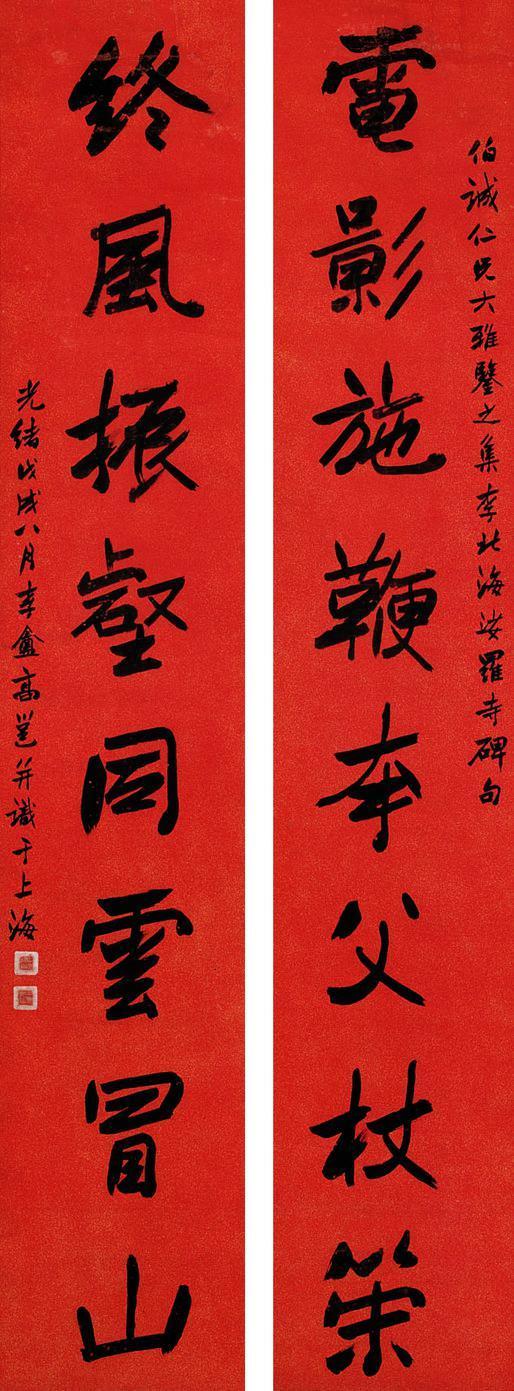 伯誠仁兄大雅鑒之集李北海娑羅寺碑句
電影施鞭夸父杖策
終風振壑同雲冒山
光緒戊戌八月李盦高邕并識于上海